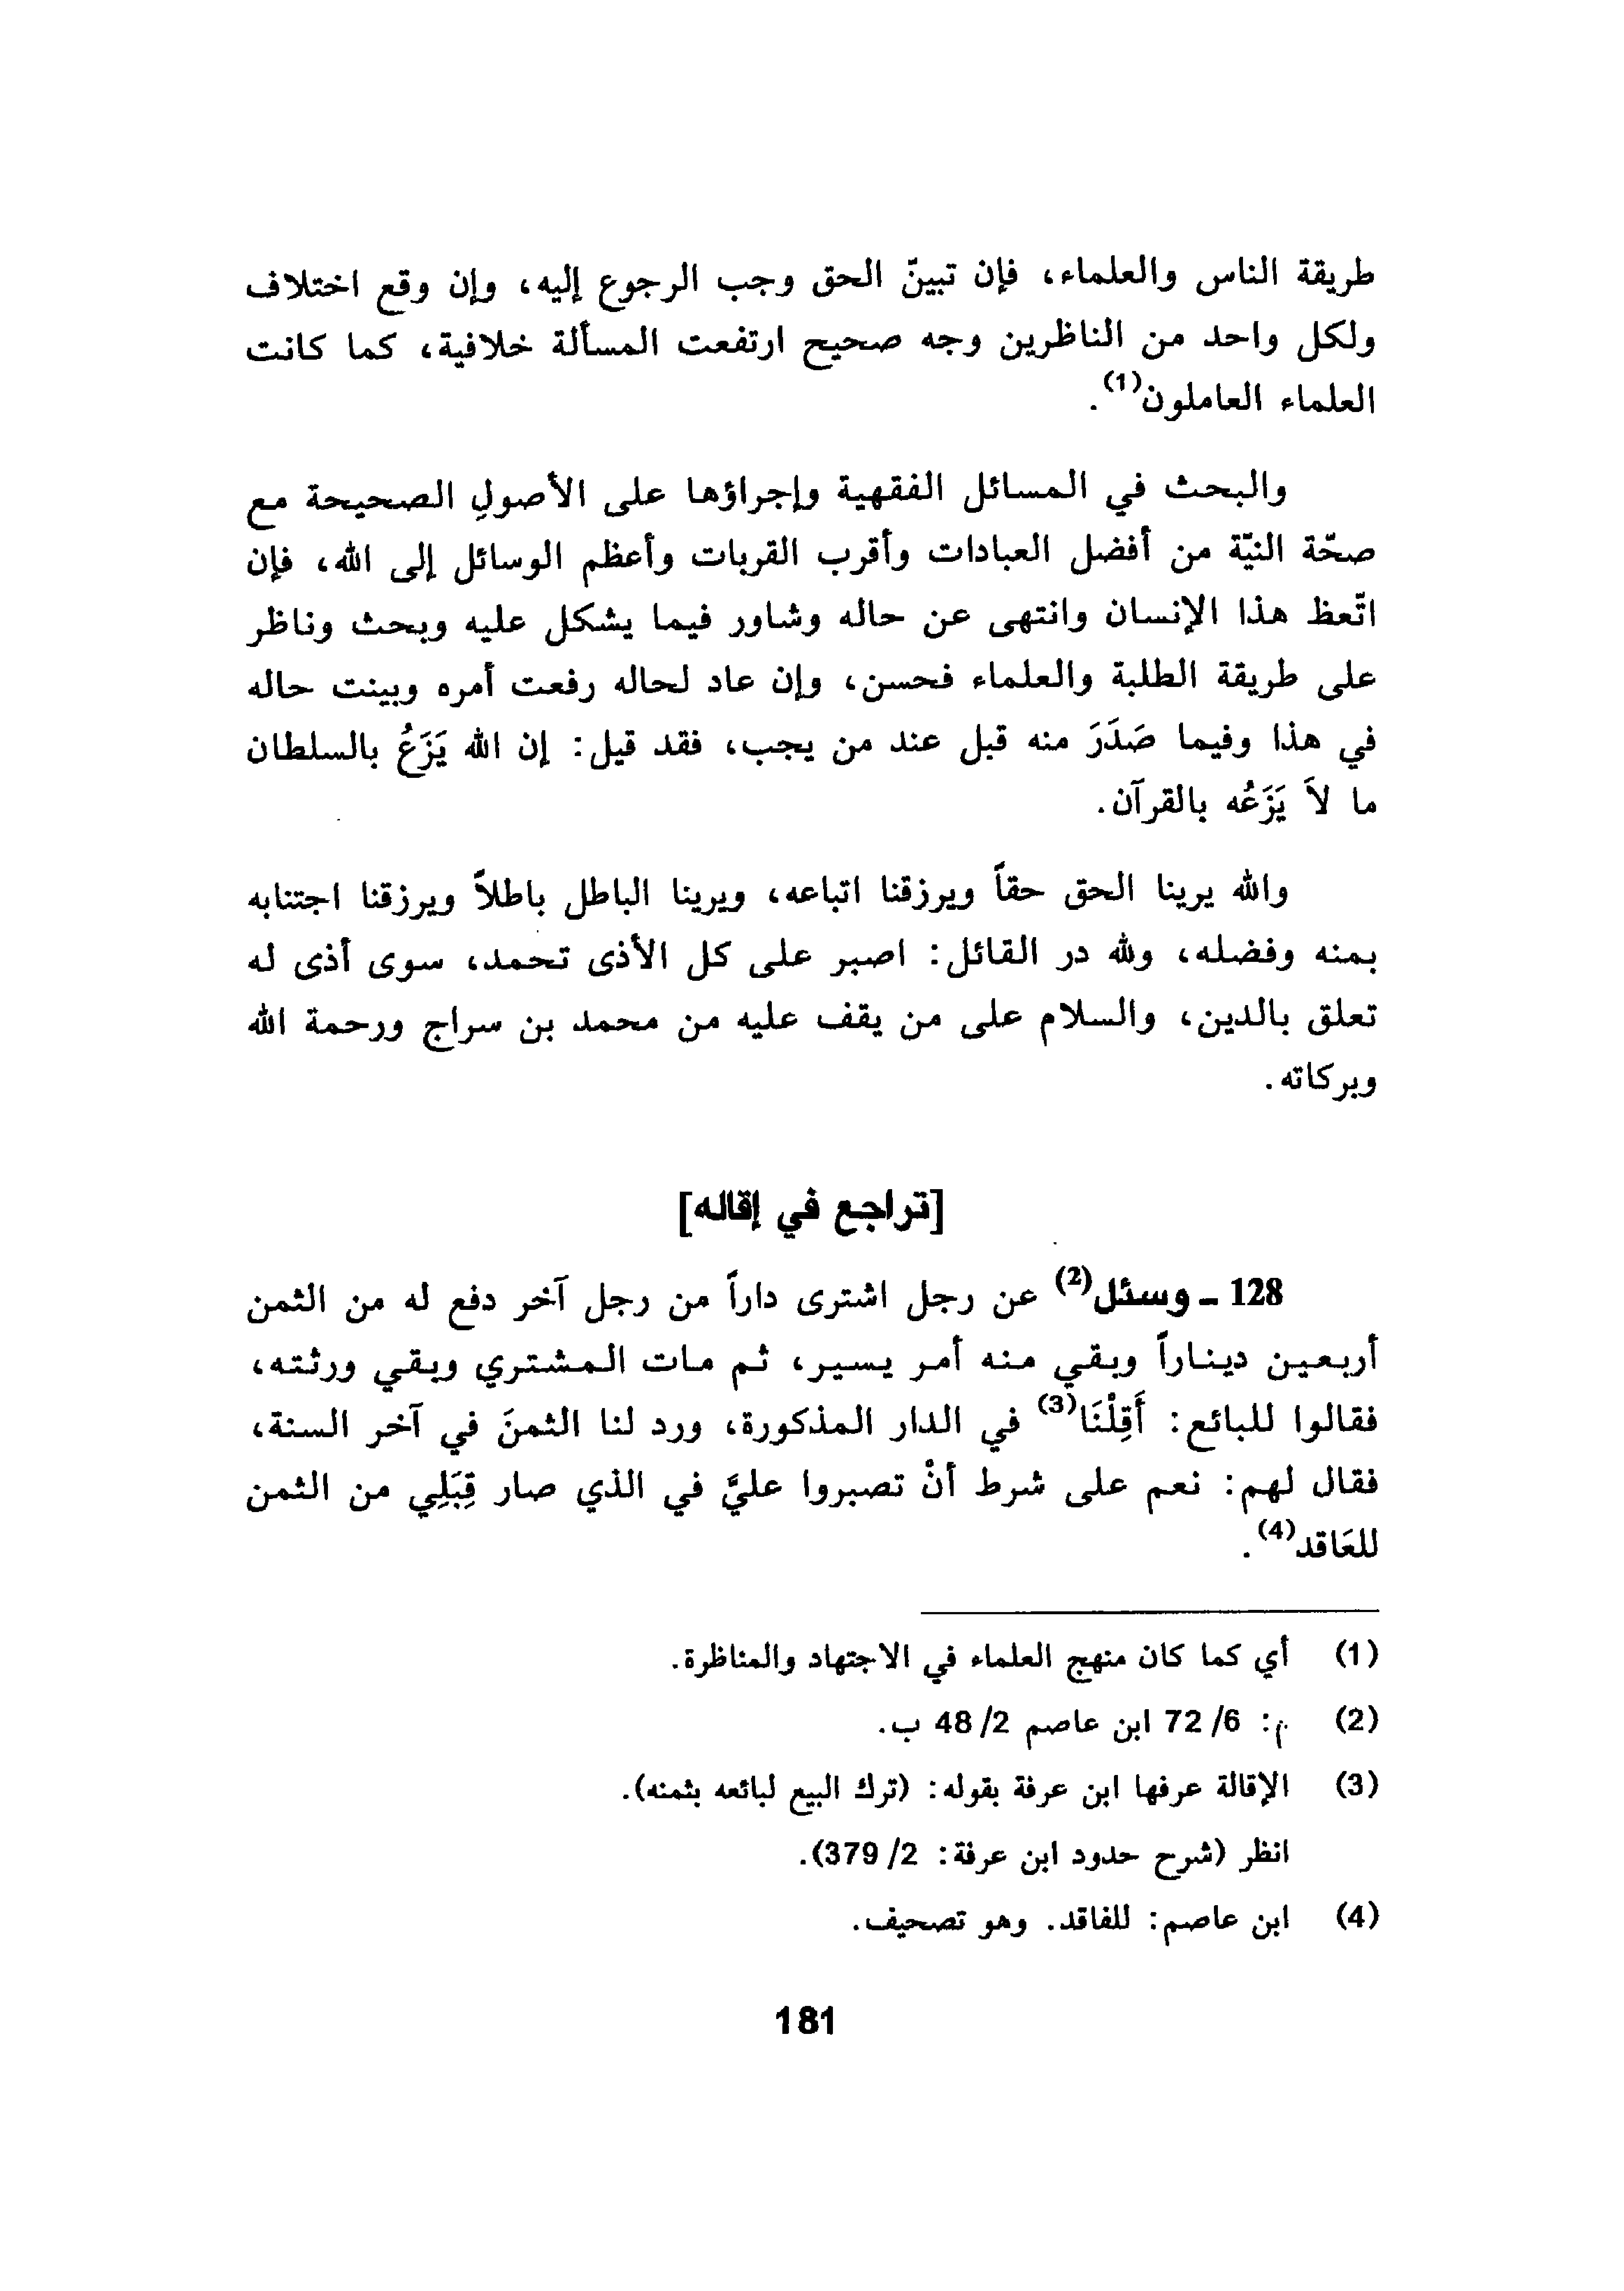 طريقة الناس والعلماء، فإن تبينّ الحق وجب الرجوع إليه، وإن وقع اختلاف
ولكل واحد من الناظرين وجه صحيح ارتفعت المسألة خلافية، كما كانت
العلماء العاملون(1).
والبحث في المسائل الفقهية وإجراؤها على الأصولِ الصحيحة مع
صحّة النيّة من أفضل العبادات وأقرب القربات وأعظم الوسائل إلى الله، فإن
اتّعظ هذا الإنسان وانتهى عن حاله وشاور فيما يشكل عليه وبحث وناظر
على طريقة الطلبة والعلماء فحسن، وإن عاد لحاله رفعت أمره وبينت حاله
في هذا وفيما صَدَرَ منه قبل عند من يجب، فقد قيل: إن الله يَزَعُ بالسلطان
ما لاَ يَزَعُه بالقرآن.
والله يرينا الحق حقاً ويرزقنا اتباعه، ويرينا الباطل باطلاً ويرزقنا اجتنابه
بمنه وفضله، ولله در القائل: اصبر على كل الأذى تحمد، سوى أذى له
تعلق بالدين، والسلام على من يقف عليه من محمد بن سراج ورحمة الله
وبركاته.
[تراجع في إقاله]
128 ـ وسئل(2) عن رجل اشترى داراً من رجل آخر دفع له من الثمن
أربعين ديناراً وبقي منه أمر يسير، ثم مات المشتري وبقي ورثته،
فقالوا للبائع: أَقِلْنَا(3) في الدار المذكورة، ورد لنا الثمنَ في آخر السنة،
فقال لهم: نعم على شرط أنْ تصبروا عليَّ في الذي صار قِبَلِي من الثمن
للعَاقد(4).
(1) أي كما كان منهج العلماء في الاجتهاد والمناظرة.
(2) م: 6/ 72 ابن عاصم 2/ 48 ب.
(3) الإقالة عرفها ابن عرفة بقوله: (ترك البيع لبائعه بثمنه).
انظر (شرح حدود ابن عرفة: 2/ 379).
(4) ابن عاصم: للفاقد. وهو تصحيف.
181